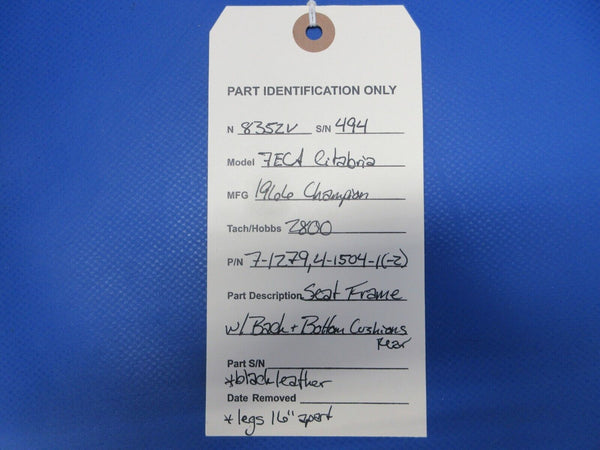 PART IDENTIFICATION ONLY
N 8352V S/N 494
Model 7ECA Citabria
MFG 1966 Champion
Tach/Hobbs 2800
P/N 7-1279, 4-1504-1(-2)
Part Description Seat Frame
w/Back + Bottom Cushions
Rear
Part S/N
*black leather
Date Removed
*legs 16" apart